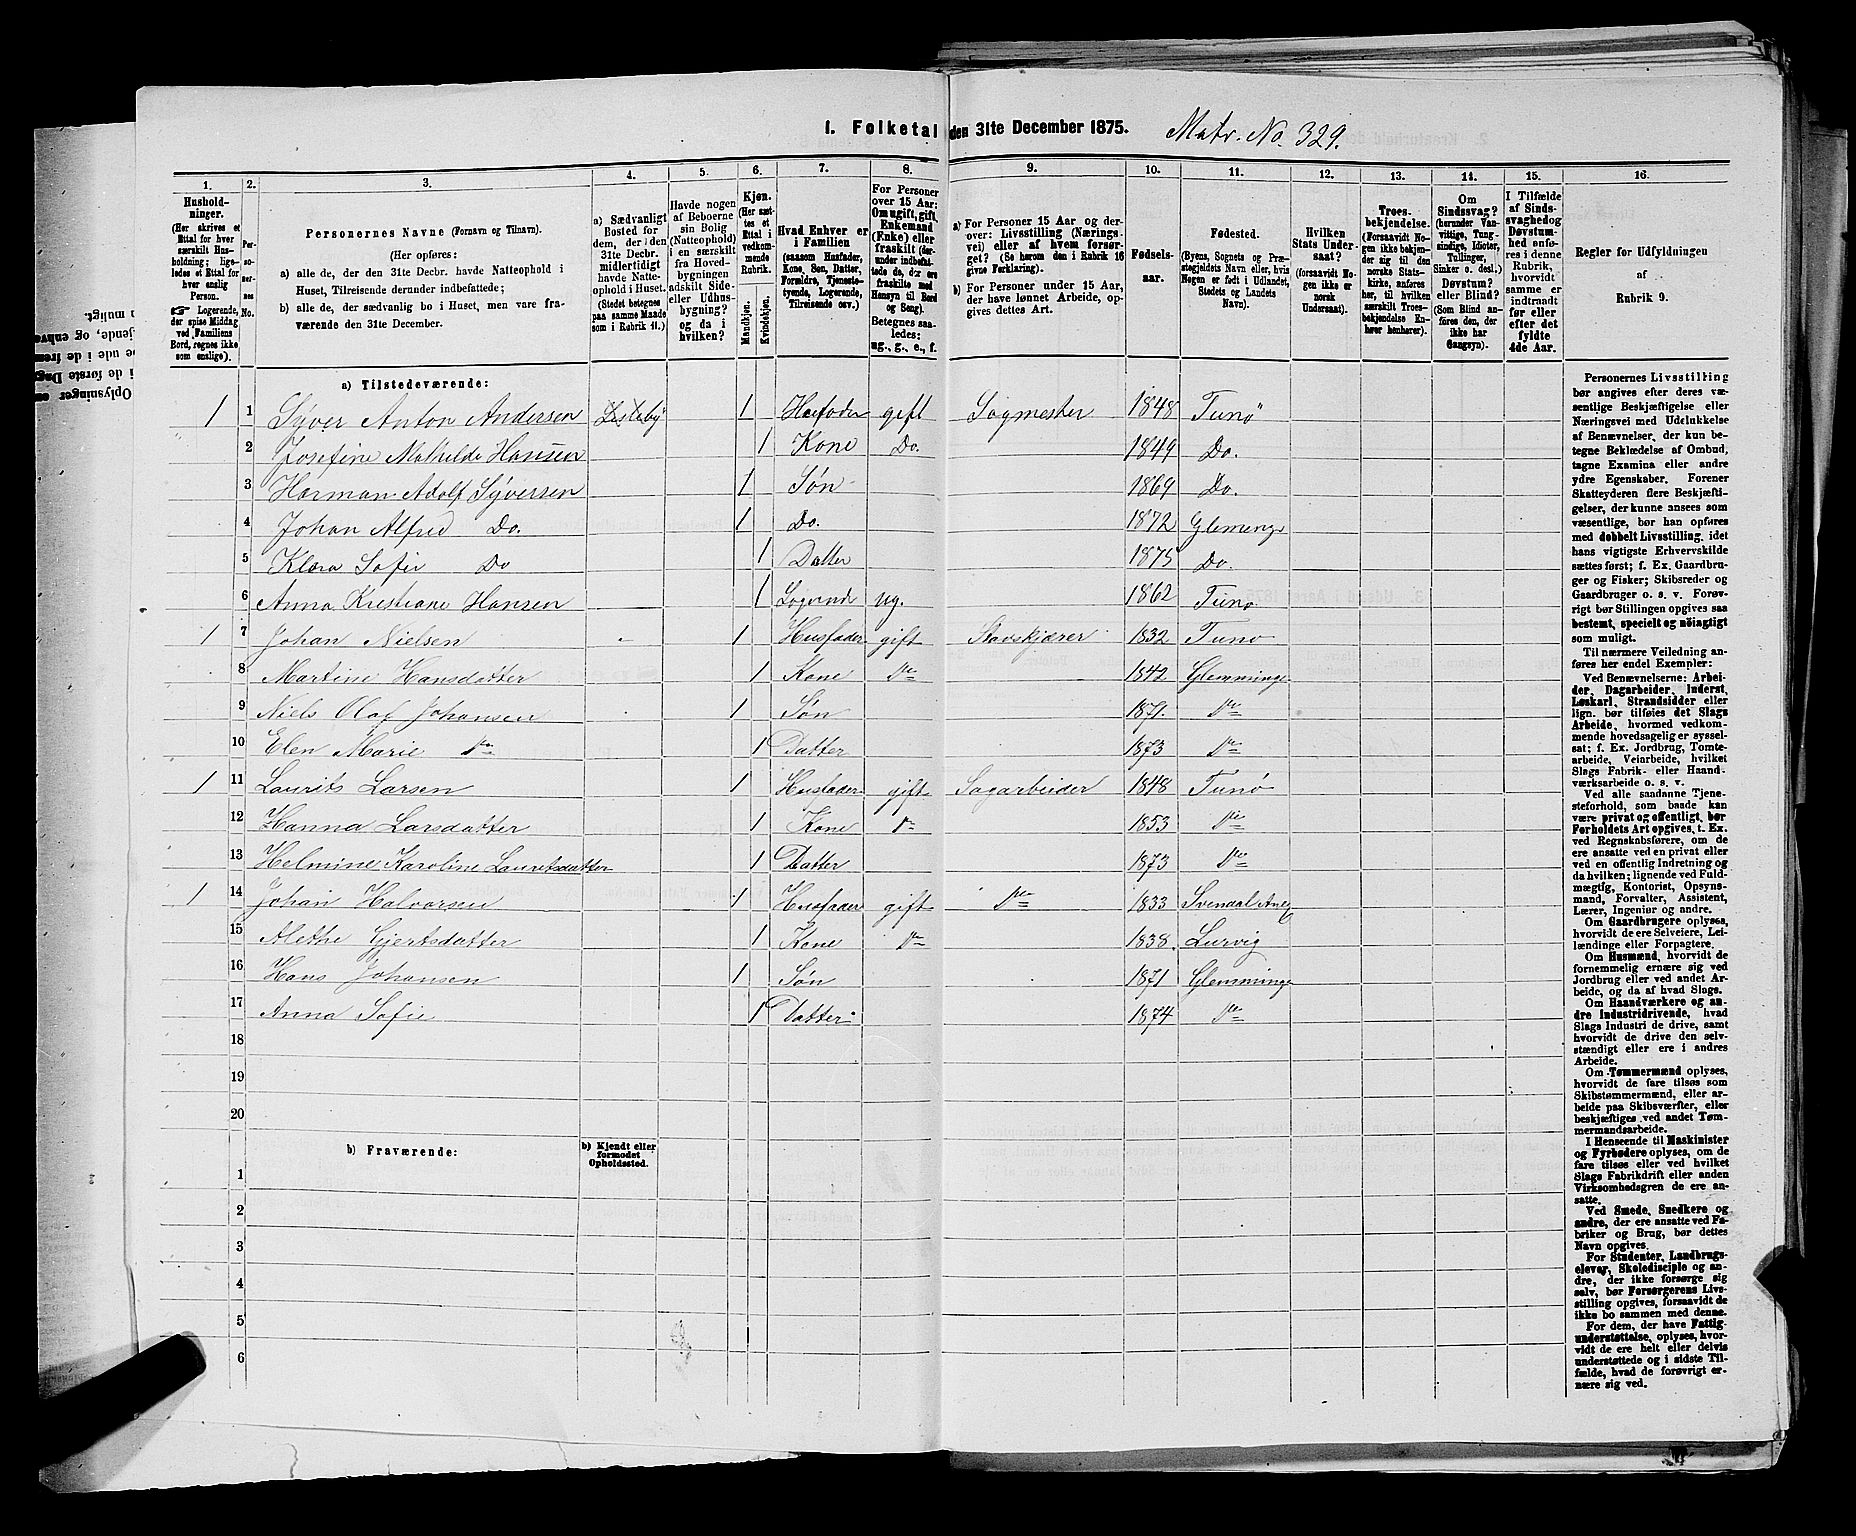 1. Folketal den 31te December 1875. Matr. No. 329.
1. 2. 3. 4. 5. 6. 7. 8. 9. 10. 11. 12. 13. 14. 15. 16.
Husholdninger.
(Her skrives et Ettal for hver særskilt Husholdning; ligeledes et Ettal for hver enslig Person.
☞ Logerende, der spise Middag ved Familiens Bord, regnes ikke som enslige).
Personernes No.
Personernes Navne (Fornavn og Tilnavn).
(Her opføres:
a) alle de, der den 31te Decbr. havde Natteophold i Huset, Tilreisende derunder indbefattede;
b) alle de, der sædvanlig bo i Huset, men vare fraværende den 31te December.
a) Sædvanligt Bosted for dem, der i den 31te Decbr. midlertidigt havde Natteophold i Huset. (Stedet betegnes paa samme Maade som i Rubrik 11.)
Havde nogen af Beboerne sin Bolig (Natteophold) i en særskilt fra Hovedbygningen adskilt Side- eller Udhusbygning? og da i hvilken?
Kjøn. (Her sættes et Ettal i vedkommende Rubrik.
Mandkjøn. Kvindekjøn.
Hvad Enhver er i Familien
(saasom Husfader, Kone, Søn, Datter, Forældre, Tjenestetyende, Logerende, Tilreisende osv.)
For Personer over 15 Aar: Om ugift, gift, Enkemand (Enke) eller fraskilt
Betegnes saaledes: ug., g., e., f.
a) For Personer 15 Aar og derover: Livsstilling (Næringsvei) eller af hvem forsørget? (Se herom den i Rubrik 16 givne Forklaring).
b) For Personer under 15 Aar, der have lønnet Arbeide, opgives dettes Art.
Fødselsaar.
Fødested.
(Byens, Sognets og Præstegjeldets Navn eller, hvis Nogen er født i Udlandet, Stedets og Landets Navn).
Hvilken Stats Undersaat? (forsaavidt Nogen ikke er norsk Undersaat).
Troesbekjendelse.
(Forsaavidt Nogen ikke bekjender sig til den norske Statskirke, anføres her, til hvilken særskilt Troesbekjendelse Enhver henhører).
Om Sindssvag? (herunder Vanvittige, Tungsindige, Idioter, Tullinger, Sinker o. desl.) Døvstum? eller Blind? (Som Blind anføres den, der ikke har Gangsyn).
I Tilfælde af Sindssvaghed og Døvstumhed anføres i denne Rubrik, hvorvidt samme er indtraadt før eller efter det fyldte 4de Aar.
Regler for Udfyldningen af Rubrik 9.
a) Tilstedeværende:
1 1 Syver Anton Andersen 1 Husfader gift Sagmester 1848 Tunø
2 Josefine Mathilde Hansen 1 Kone Do. 1849 Do.
3 Harman Adolf Syversen 1 Søn 1869 Do.
4 Johan Alfred Do. 1 Do. 1872 Glemminge
5 Klara Sofie Do 1 Datter 1875 Do.
6 Anna Kristiane Hansen 1 Logerende ug. 1862 Tunø
1 7 Johan Nielsen 1 Husfader gift Stavskjærer 1832 Tunø
8 Martine Hansdatter 1 Kone Do 1842 Glemminge
9 Niels Olaf Johansen 1 Søn 1871. Do
10 Elen Marie Do 1 Datter 1873 Do
1 11 Laurits Larsen 1 Husfader gift Sagarbeider 1848 Tunø
12 Hanna Larsdatter 1 Kone Do 1853 Do
13 Helmine Karoline Lauritsdatter 1 Datter 1873 Do
1 14 Johan Halvorsen 1 Husfader gift Do 1833 Svendal Anex
15 Alethe Gjertsdatter 1 Kone Do 1838. Lurvig
16 Hans Johansen 1 Søn 1871 Glemminge
17 Anna Sofie 1 Datter 1874 Do
18
19
20
b) Fraværende: b) Kjendt eller formodet Opholdssted.
1
2
3
4
5
6
Personernes Livsstilling bør angives efter deres væsentlige Beskjæftigelse eller Næringsvei med Udelukkelse af Benævnelser, der kun betegne Beklædelse af Ombud, tagne Examina eller andre ydre Egenskaber. Forener Skatteyderen flere Beskjæftigelser, der kunne ansees som væsentlige, bør han opføres med dobbelt Livsstilling, idet hans vigtigste Erhvervskilde sættes først; f. Ex. Gaardbruger og Fisker; Skibsreder og Gaardbruger o. s. v. Forøvrigt bør Stillingen opgives saa bestemt, specielt og nøiagtigt som muligt.
Til nærmere Veiledning anføres her endel Exempler:
Ved Benævnelserne: Arbeider, Dagarbeider, Inderst, Løskarl, Strandsidder eller lign. bør tilføies det Slags Arbeide, hvormed vedkommende hovedsagelig er sysselsat; f. Ex. Jordbrug, Tomtearbeide, Veiarbeide, hvilket Slags Fabrik- eller Haandværksarbeide o. s. v.
Ved alle saadanne Tjenesteforhold, som baade kan være privat og offentligt, bør Forholdets Art opgives, t. Ex. ved Regnskabsførere, om de ere ansatte ved en privat eller ved en offentlig Indretning og da hvilken; lignende ved Fuldmægtig, Kontorist, Opsynsmand, Forvalter, Assistent, Lærer, Ingeniør og andre.
Om Gaardbrugere oplyses, hvorvidt de ere Selveiere, Leilændinge eller Forpagtere.
Om Husmænd, hvorvidt de fornemmelig ernære sig ved Jordbrug eller ved andet Arbeide, og da af hvad Slags.
Om Haandværkere og andre Industridrivende, hvad Slags Industri de drive, samt hvorvidt de drive den selvstændigt eller ere i andres Arbeide.
Om Tømmermænd oplyses, hvorvidt de fare tilsøs som Skibstømmermænd, eller arbeide paa Skibsværfter, eller beskjæftiges ved andet Tømmermandsarbeide.
I Henseende til Maskinister og Fyrbødere oplyses, om de fare tilsøs eller ved hvilket Slags Fabrikdrift eller anden Virksomhedsgren de ere ansatte.
Ved Smede, Snedkere og andre, der ere ansatte ved Fabriker og Brug, bør dettes Navn opgives.
For Studenter, Landbrugselever, Skoledisciple og andre, der ikke forsørge sig selv, bør Forsørgerens Livsstilling opgives, forsaavidt de ikke bo sammen med denne.
For dem, der have Fattigunderstøttelse, oplyses, hvorvidt de ere helt eller delvis understøttede og i sidste Tilfælde, hvad de forøvrigt ernære sig ved.